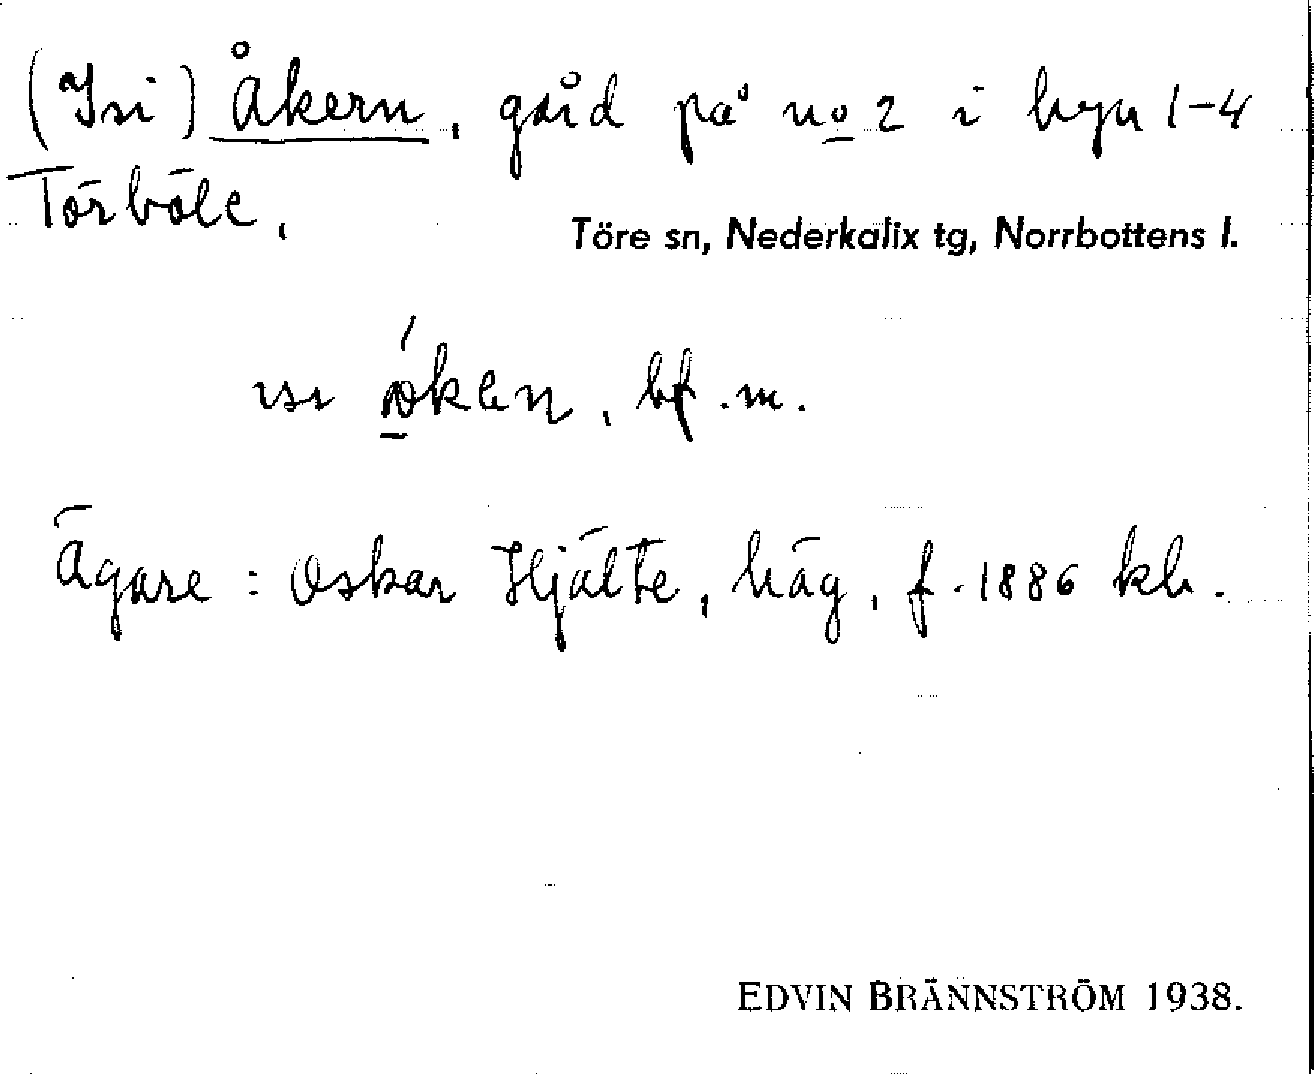 (Isi) Åkern, gård på no 2 i byn 1-4
Törböle.
Töre sn, Nederkalix tg, Norrbottens l.
bf. m.
Ägare: Oskar Hjälte, häg, f. 1886 kb.
EDVIN BRÄNNSTRÖM 1938.